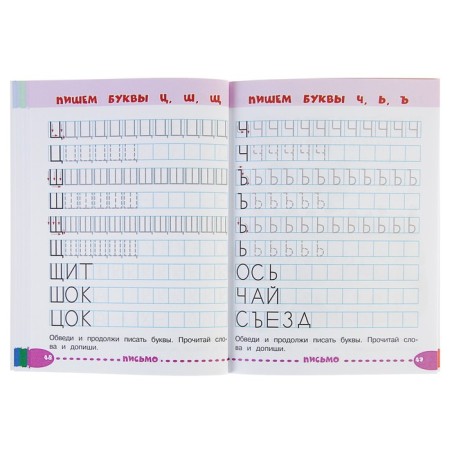 ПИШЕМ БУКВЫ Ц, Ш, Щ
Ц
Ц
Ш
Ш
Щ
Щ
ЩИТ
ШОК
ЦОК
Обведи и продолжи писать буквы. Прочитай сло-
ва и допиши.
ПИСЬМО
ПИШЕМ БУКВЫ Ч, Ь, Ъ
Ч Ч Ч Ч Ч Ч Ч Ч Ч Ч Ч Ч
Ч Ч Ч Ч Ч Ч
Ъ Ъ Ъ Ъ Ъ Ъ Ъ Ъ Ъ Ъ Ъ Ъ
Ъ Ъ Ъ Ъ Ъ Ъ
Ь Ь Ь Ь Ь Ь Ь Ь Ь Ь Ь Ь
Ь Ь Ь Ь Ь Ь
ОСЬ
ЧАЙ
СЪЕЗД
Обведи и продолжи писать буквы. Прочитай сло-
ва и допиши.
ПИСЬМО 47